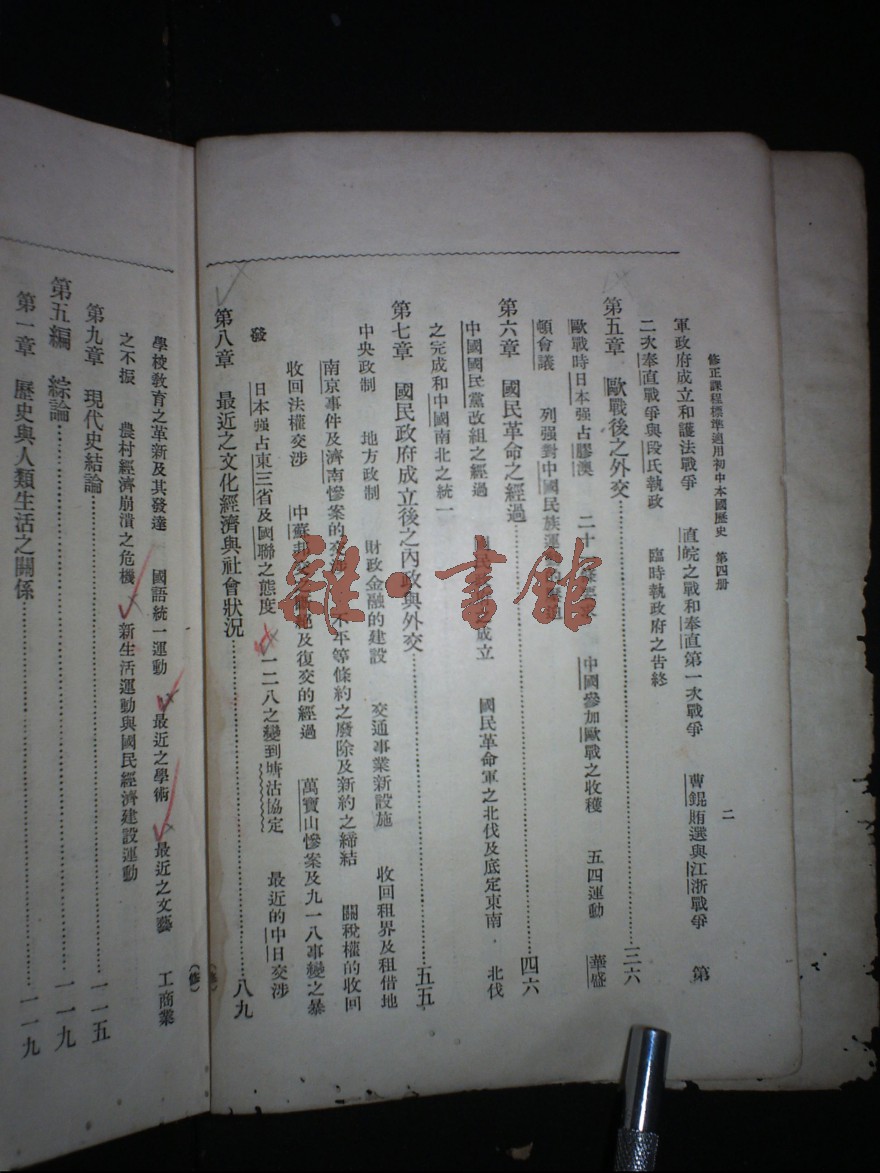 修正課程標準適用初中本國歷史 第四册 二
軍政府成立和護法戰爭 直皖之戰和奉直第一次戰爭 曹錕賄選與江浙戰爭 第
二次奉直戰爭與段氏執政 臨時執政府之告終
第五章 歐戰後之外交 三六
歐戰時日本强占膠澳 二十 中國參加歐戰之收穫 五四運動 華盛
頓會議 列强對中國民族運
第六章 國民革命之經過 四六
中國國民黨改組之經過 國民 成立 國民革命軍之北伐及底定東南 北伐
之完成和中國南北之統一
第七章 國民政府成立後之內政與外交 五五
中央政制 地方政制 財政金融的建設 交通事業新設施 收回租界及租借地
南京事件及濟南慘案的交 不平等條約之廢除及新約之締結 關稅權的收回
收回法權交涉 中蘇邦交之 及復交的經過 萬寶山慘案及九一八事變之暴
發 日本强占東三省及國聯之態度 一二八之變到塘沽協定 最近的中日交涉
第八章 最近之文化經濟與社會狀況 八九
(修)
學校敎育之革新及其發達 國語統一運動 最近之學術 最近之文藝 工商業
之不振 農村經濟崩潰之危機 新生活運動與國民經濟建設運動
第九章 現代史結論 一一五
第五編 綜論 一一九
第一章 歷史與人類生活之關係 一一九
(修)
雜·書館